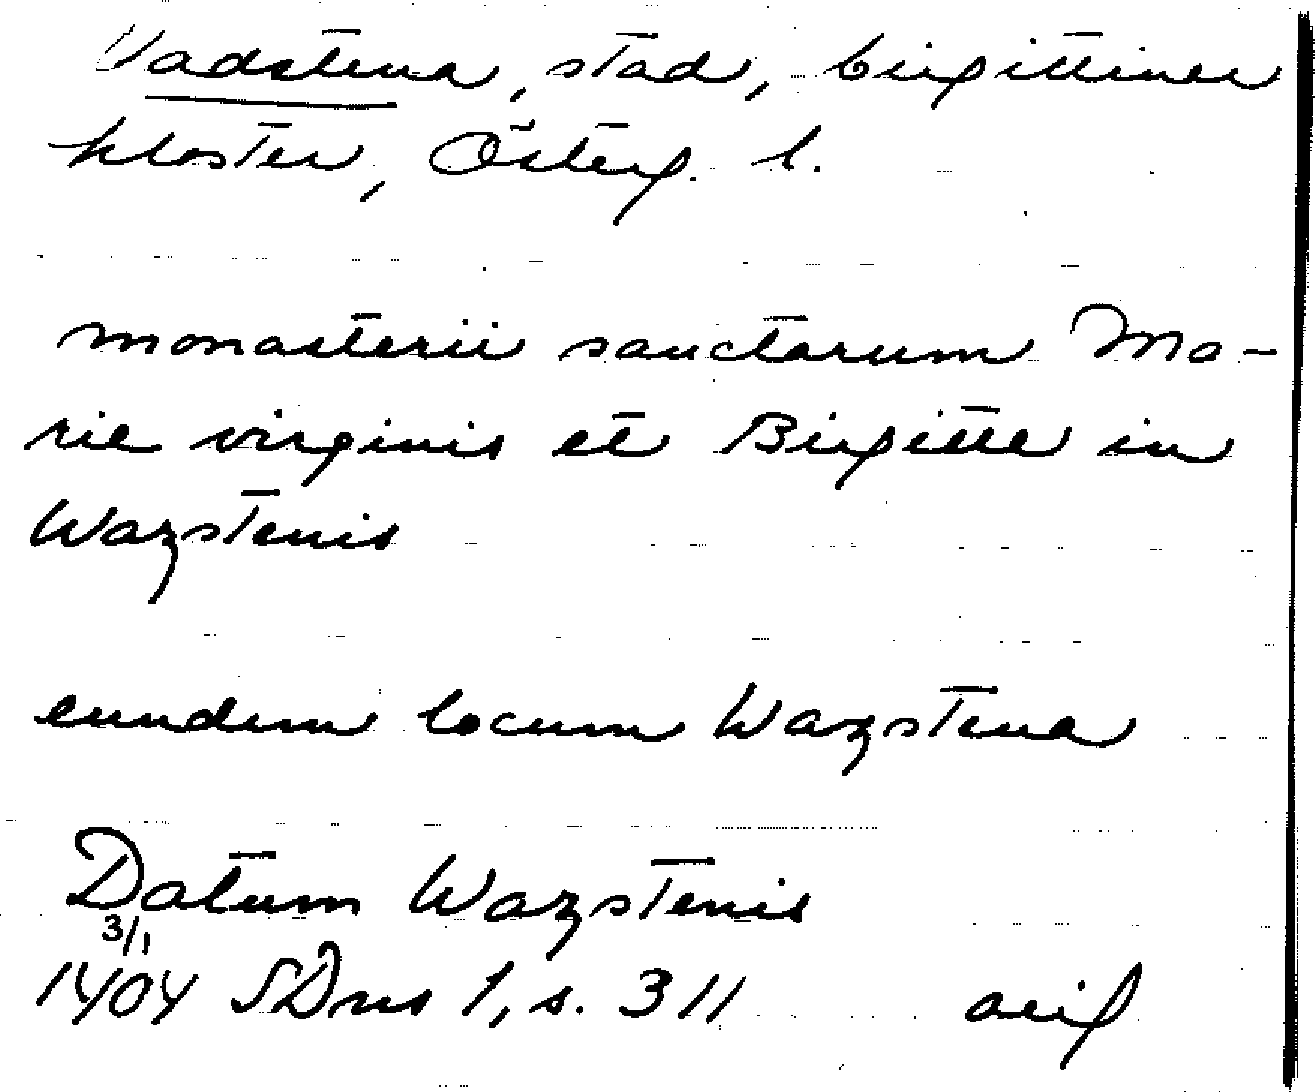 Vadstena, stad, birgittiner
kloster, Österg. l.
monasterii sanctarum Ma-
rie virginis et Birgitte in
Wazstenis
eundem locum Wazstena
Datum Wazstenis
3/1
1404 SDns 1, s. 311